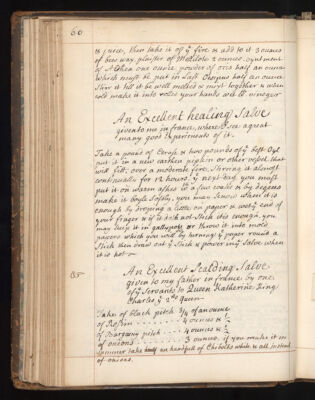 60
& juice, then take it of yͤ fire & add to it 3 ounces
of bees wax, plaister of Mellilote 2 ounces, oyntment
of Althea one ounce, powder of oris half an ounce
which must be put in last Oleopus half an ounce
Stir it till it be well melted & mixt together & when
cold make it into roles your hands well
An Excellent healing Salve
given to me in france, where I see a great
many good experiments of it.
Take a pound of Ceruse & two pounds of yͤ best Oyl
put it in a new earthen pipkin or other vessel that
will fill, over a moderate fire, stiring it almost
continually for 12 hours, yͤ next day you must
put it on warm ashes wͭͪ a few coales & by degrees
make it boyle softly, you may know when it is
enough by droping a little on paper & wet yͤ end of
your finger & if it doth not stick it is enough, you
may keep it in gallypots or throw it into mold
papers which you roll by turning yͤ paper round a
stick then draw out yͤ stick & power in yͤ Salve when
it is hot
85
An Excellent Scalding Salve
given to my father in france by one
of yͤ Servants to Queen Katherine King
Charles yͤ 2ͩ Queen
Take of black pitch ¾ of an ounce
of Rosin 4 ounces & ½
of Burgamy pitch 4 ounces & ½
of onions 3 ounces, if you make it in
summer take half an handfull of Chibolls while & all instead
of onions.